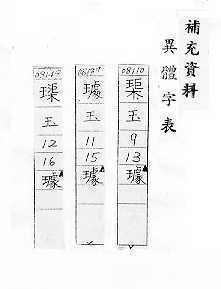 補充資料
異體字表
08110
玉
9
13
璩
玉
11
15
璩
璖
玉
12
16
璩